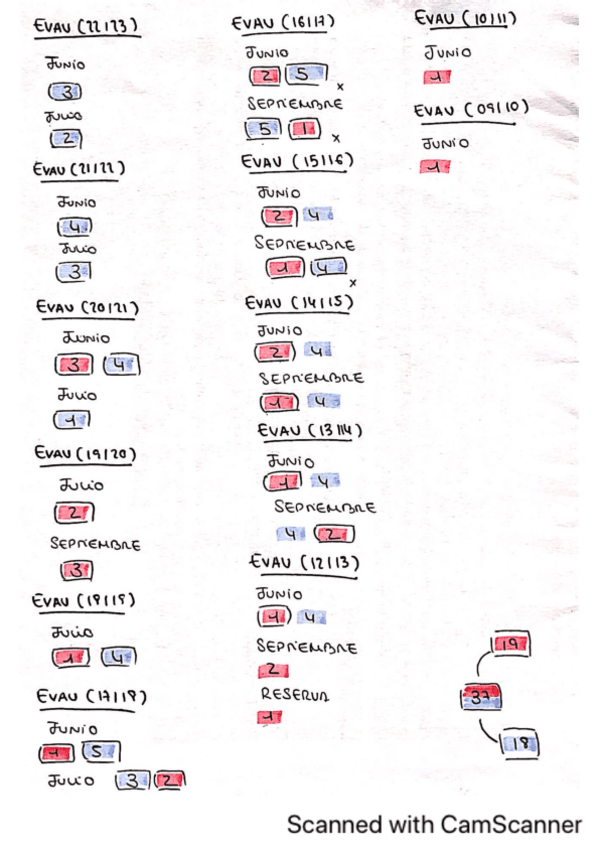 EVAU (22/23)
JUNIO
3
JULIO
2
EVAU (21/22)
JUNIO
4
JULIO
3
EVAU (20/21)
JUNIO
3 4
JULIO
1
EVAU (19/20)
JULIO
2
SEPTIEMBRE
3
EVAU (18/19)
JULIO
1 4
EVAU (17/18)
JUNIO
1 5
JULIO 3 2
EVAU (16/17)
JUNIO
2 5 x
SEPTIEMBRE
5 1 x
EVAU (15/16)
JUNIO
2 4
SEPTIEMBRE
1 4 x
EVAU (14/15)
JUNIO
2 4
SEPTIEMBRE
1 4
EVAU (13/14)
JUNIO
1 4
SEPTIEMBRE
4 2
EVAU (12/13)
JUNIO
1 4
SEPTIEMBRE
2
RESERVA
1
EVAU (10/11)
JUNIO
1
EVAU (09/10)
JUNIO
1
19
37
18
Scanned with CamScanner